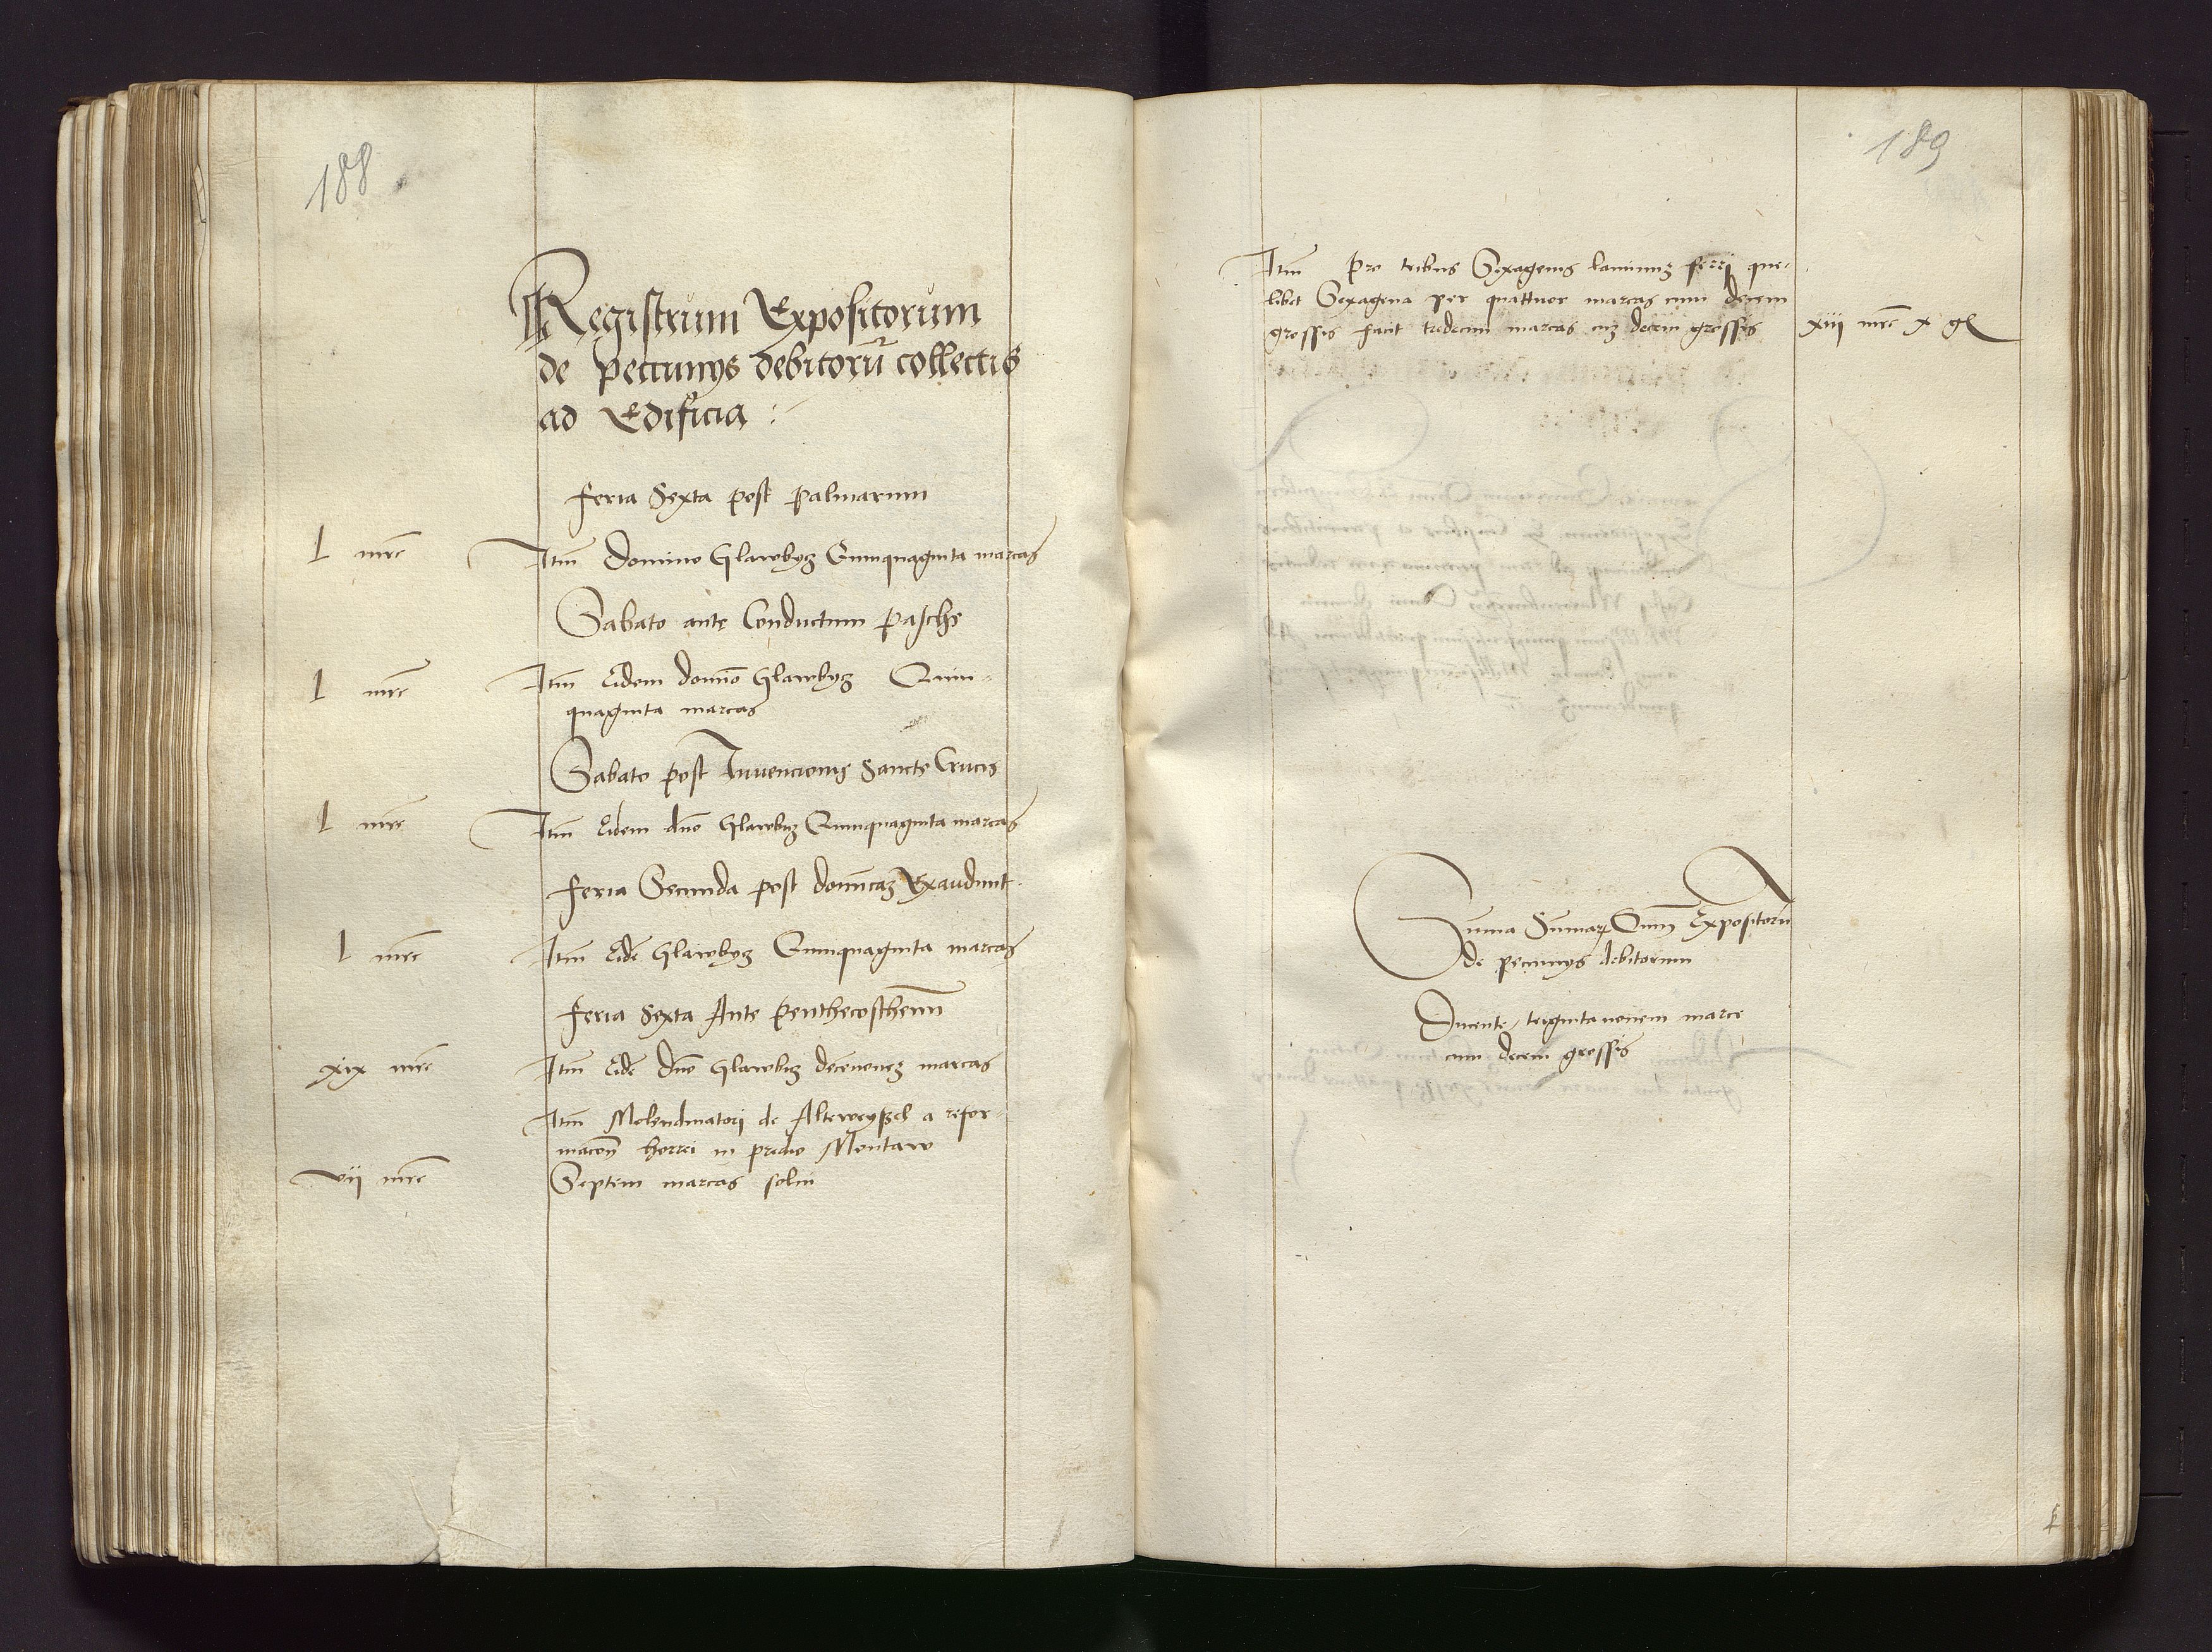 188
Registrum Expositorum
de peccunijs debitorū collectis
ad Edificia :
feria Sexta post palmarum
l mrc Itm Domino Glawbicz Quinquaginta marcas
Sabato ante Conductum pasche
l mrc Itm Eidem domno Glawbicz Quin-
quaginta marcas
Sabato post Invencionis Sancte Crucis
l mrc Itm Eidem dno Glawbicz Quinquaginta marcas
feria Secunda post dominicaz Exaudi
l mrc Itm Eidē Glawbicz Quinquaginta marcas
feria Sexta Ante penthecosthem
xix mrc Itm Eidē dno Glawbicz decenovez marcas
Itm Molendinatori de Alteweyssel a refor-
macōn horrei in predio Montaw
vij mrc Septem marcas solui
189
Itm pro tribus Sexagenis laminuz ferri que-
libet Sexagena per quattuor marcas cum decem
grossis facit tredecim marcas cuz decem grossis xiij mrc x gr
Suma Sumarū Omnī Expositorū
de pecunijs debitorum
Ducente triginta novem marce
cum decem grossis